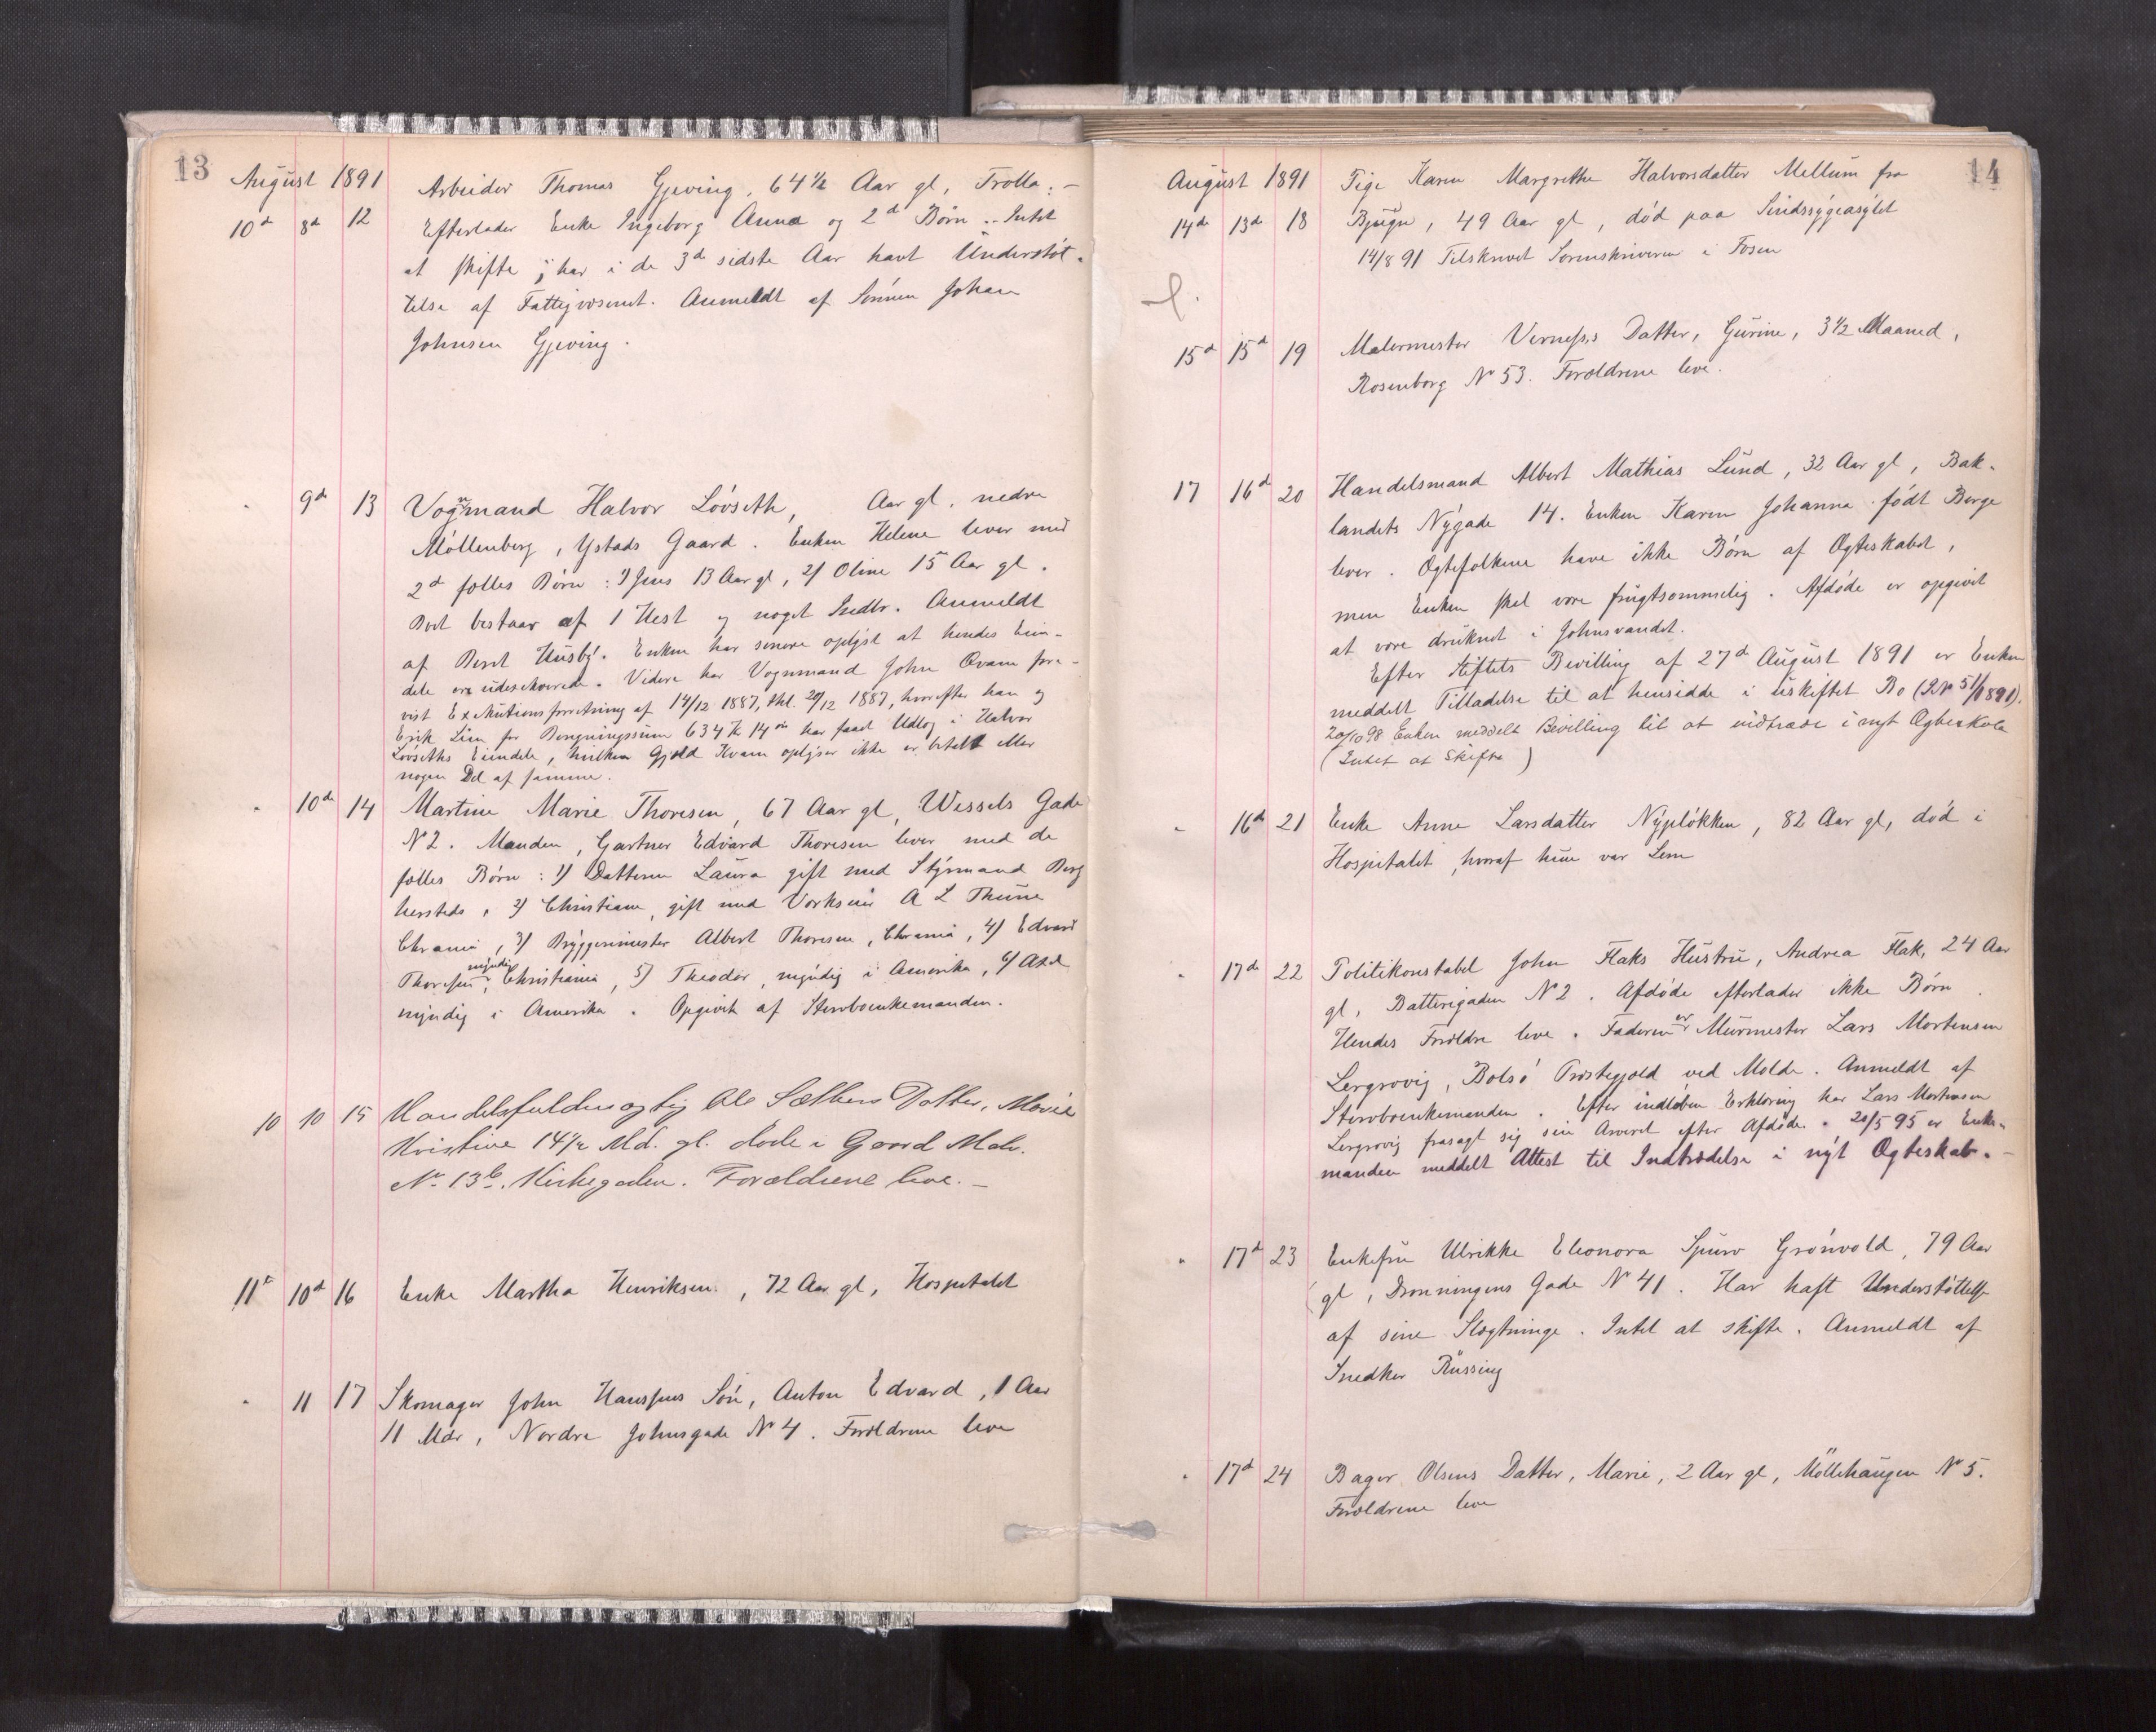 13
August 1891
10d 8d 12 Arbeider Thomas Gjeving, 64½ Aar gl, Trolla:-
Efterlader Enke Ingeborg Anna og 2d Børn .. Intet
at skifte; har i de 3d sidste Aar havt Understøt-
telse af Fattigvæsenet. Anmeldt af Sønnen Johan
Johnsen Gjeving.
" 9d 13 Vognmand Halvor Løvseth, Aar gl, nedre
Møllenberg, Ystads Gaard. Enken Helene lever med
2d fælles Børn: 1) Jens 13 Aar gl, 2) Oline 15 Aar gl.
Boet bestaar af 1 Hest og noget Indbo. Anmeldt
af Beret Husby. Enken har senere oplyst at hendes Eien-
dele ere udexekverede. Videre har Vognmand John Qvam fore-
vist Exekutionsforretning af 14/12 1887, thl. 20/12 1887, hvorefter han og
Erik Lien for Borgningssum 634 Kr 14 øre har faaet Udlæg i Halvor
Løvseths Eiendele, hvilken Gjæld Kvam oplyser ikke er betalt eller
nogen Del af samme.
" 10de 14 Martine Marie Thoresen, 67 Aar gl, Wessels Gade
N 2. Manden, Gartner Edvard Thoresen lever med de
fælles Børn: 1) Datteren Laura gift med Styrmand Berg
hersteds, 2) Christiane, gift med Værkseier A L Thune
Chrania, 3) Bryggerimester Albert Thoresen, Chrania, 4) Edvard
Thoresen, myndig, Christiania, 5) Theodor, myndig i Amerika, 6) Axel
myndig i Amerika. Opgivet af Stervboenkemanden.
10 10 15 Handelsfuldmægtig Ole Sæthers Datter, Marie
Kristine 14½ Md. gl. døde i Gaard Matr.
No 13b. Kirkegaden. Forældrene leve.-
11te 10d 16 Enke Martha Henriksen, 72 Aar gl, Hospitalet
" 11 17 Skomager John Hansens Søn, Anton Edvard, 1 Aar
11 Mdr, Nordre Johnsgade No 4. Forældrene leve
14
August 1891
14de 13de 18 Pige Karen Margrethe Halvorsdatter Mellum fra
Bjugn, 49 Aar gl, død paa Sindssygeasylet
14/8 91 Tilskrevet Sorenskriveren i Fosen
15d 15d 19 Malermester Verness's Datter, Gurine, 3½ Maaned,
Rosenborg No 53. Forældrene leve.
17 16d 20 Handelsmand Albert Mathias Lund, 32 Aar gl, Bak-
landets Nygade 14. Enken Karen Johanna født Berge
lever. Ægtefolkene have ikke Børn af Ægteskabet,
men Enken skal være frugtsommelig. Afdøde er opgivet
at være druknet i Johnsvandet.
Efter Stiftets Bevilling af 27d August 1891 er Enken
meddelt Tilladelse til at hensidde i uskiftet Bo (P.No 51/1891).
20/10 98 Enken meddelt Bevilling til at indtræde i nyt Ægteskab
(Intet at Skifte)
" 16de 21 Enke Anne Larsdatter Nypløkken, 82 Aar gl, død i
Hospitalet, hvoraf hun var Lem
" 17de 22 Politikonstabel John Flaks Hustru, Andrea Flak, 24 Aar
gl, Batterigaden No 2. Afdøde efterlader ikke Børn.
Hendes Forældre leve. Faderen er Murmester Lars Mortensen
Lergrovig, Bolsø Præstegjæld ved Molde. Anmeldt af
Stervboenkemanden. Efter indløben Erklæring har Lars Mortensen
Lergrovig frasagt sig sin Arveret efter Afdøde. 20/5 95 er Enke-
manden meddelt Attest til Indtrædelse i nyt Ægteskab.-
" 17d 23 Enkefru Ulrikke Eleonora Spuro Grønvold, 79 Aar
gl, Dronningens Gade No 41. Har haft Understøttelse
af sine Slægtninge. Intet at skifte. Anmeldt af
Snedker Rüssing
" 17d 24 Bager Olsens Datter, Marie, 2 Aar gl, Möllehaugen No 5.
Forældrene leve